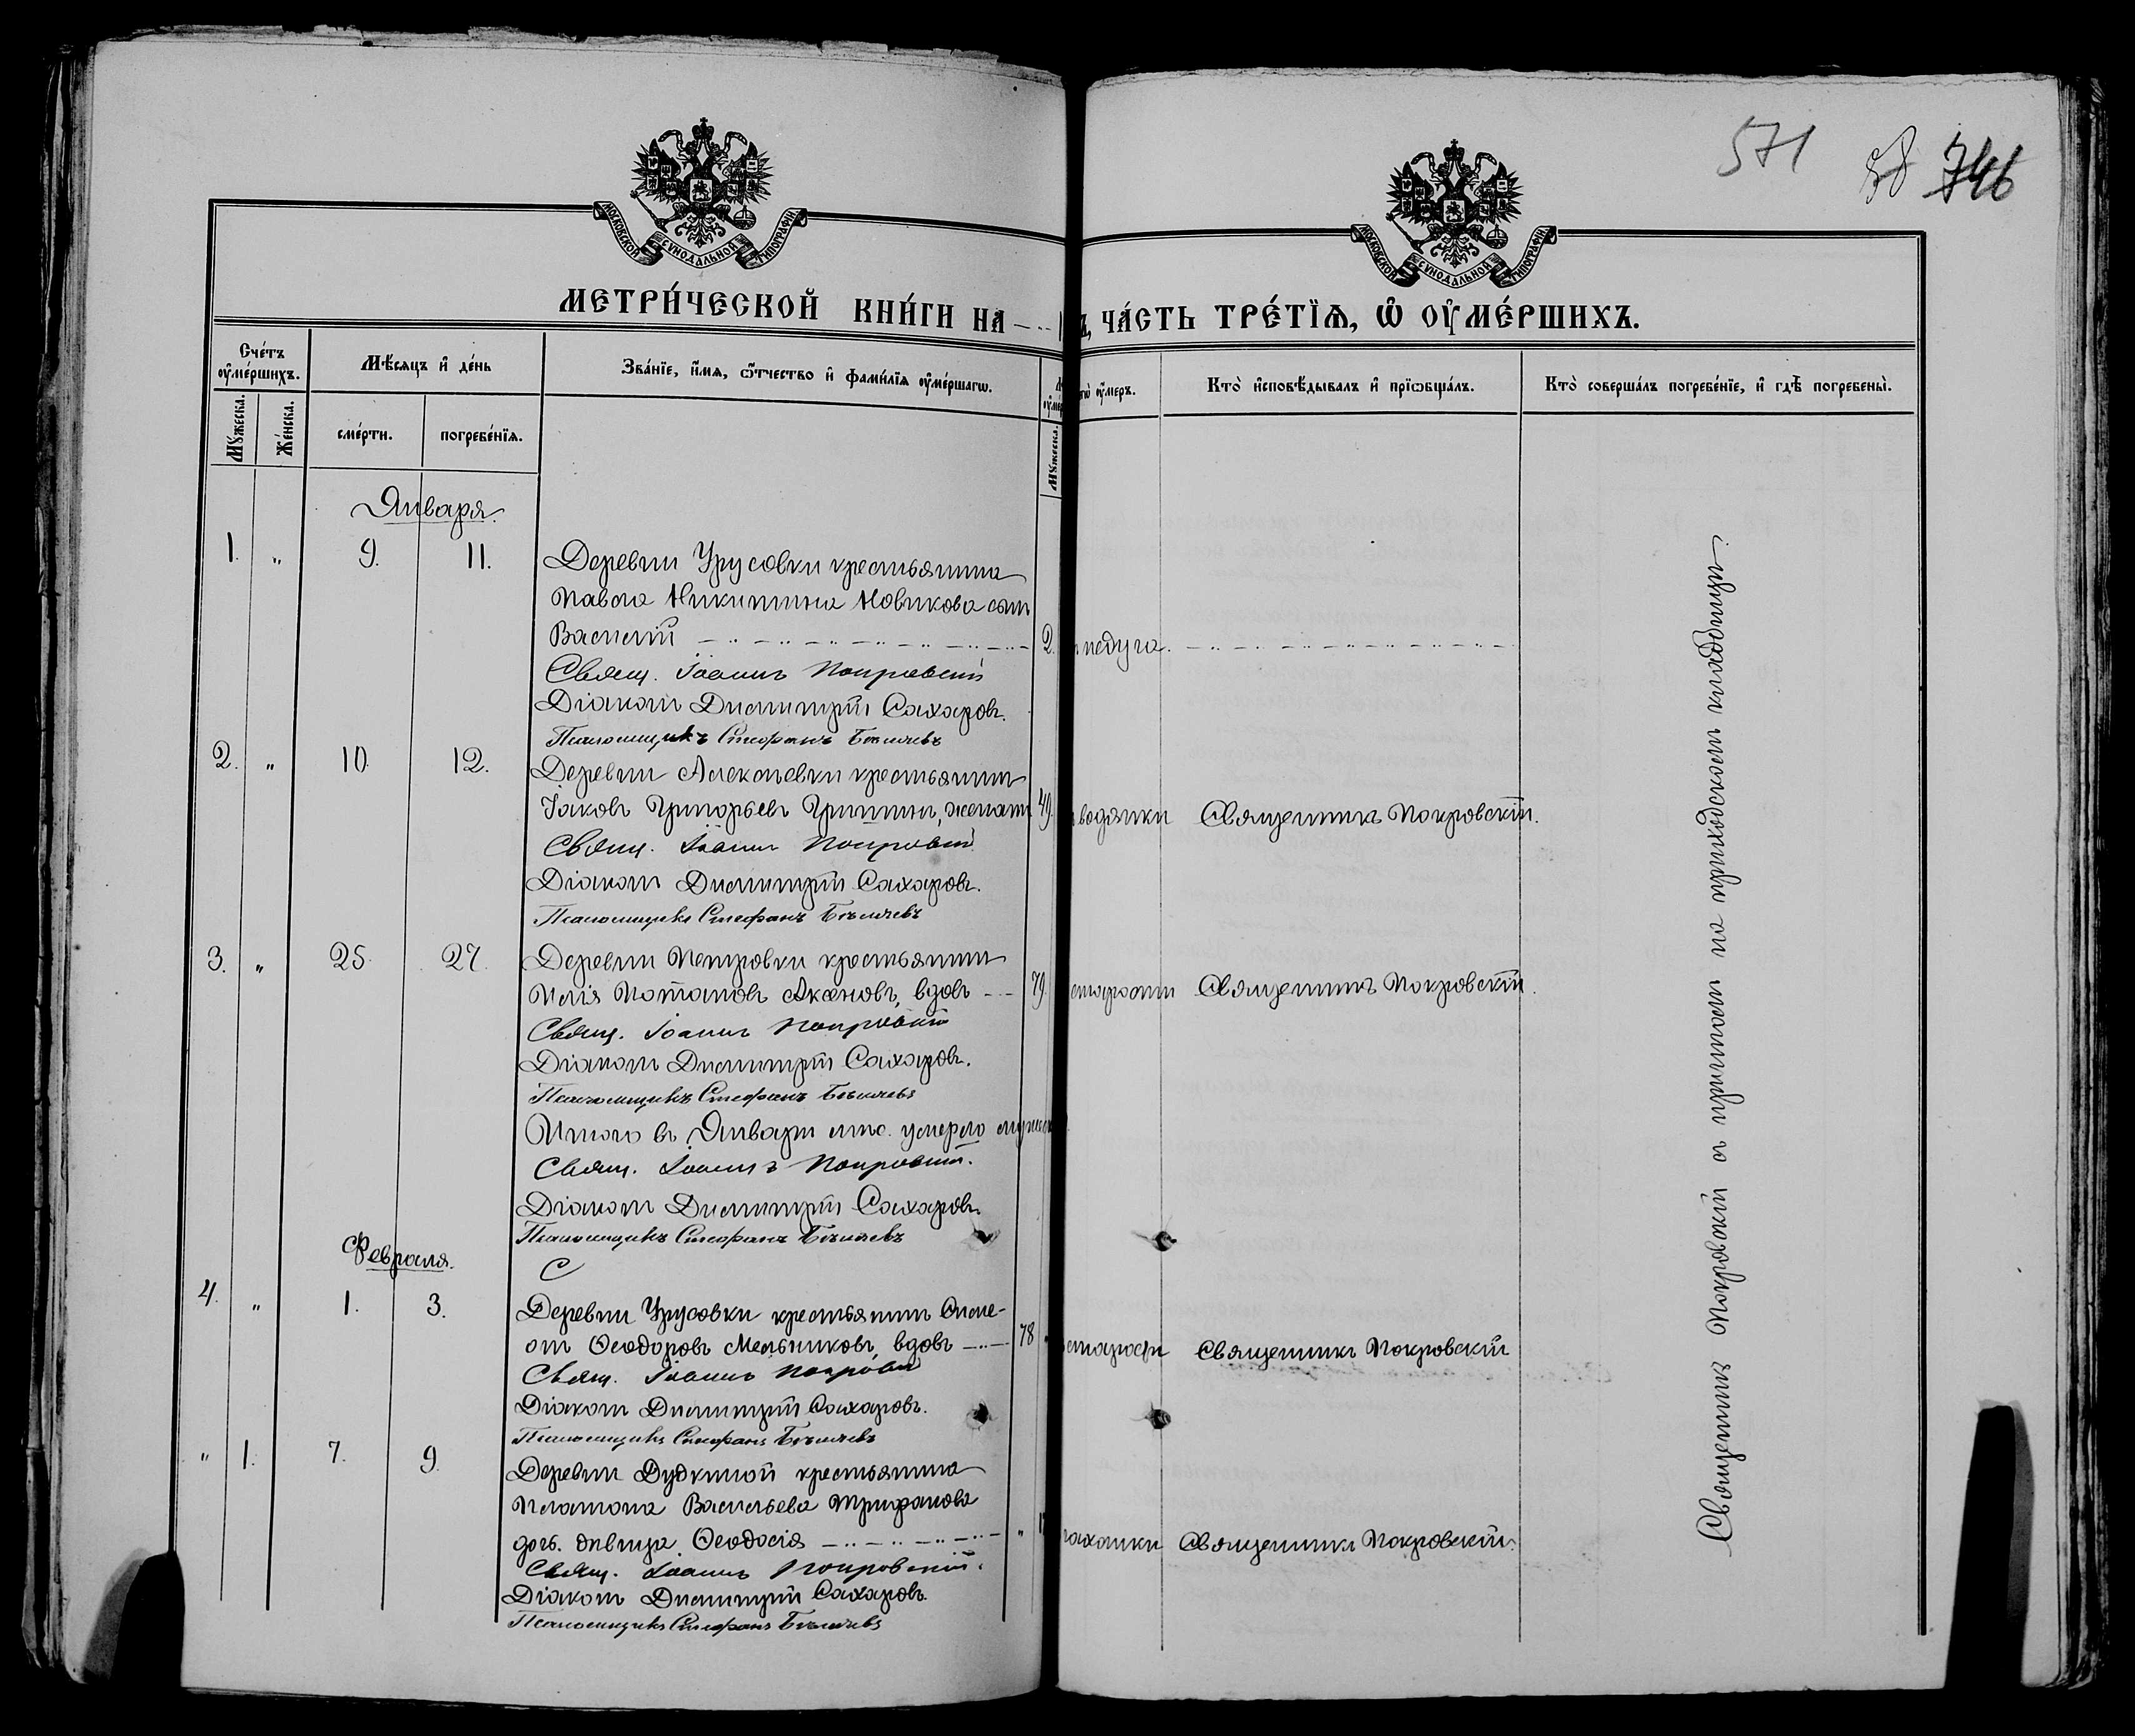 571 746
МОСКОВСКОЙ СѴНОДАЛЬНОЙ ТИПОГРАФІИ
МОСКОВСКОЙ СѴНОДАЛЬНОЙ ТИПОГРАФІИ
МЕТРИ́ЧЕСКОЙ КНИ́ГИ НА
ЧА́СТЬ ТРЕ́ТЇѦ, Ѡ҆ ОУ҆МЕ́РШИХЪ.
Сче́тъ оу҆ме́ршихъ.
Мѣ́сѧцъ и҆ де́нь
Зва́нїе, и҆́мѧ, ѻ҆́тчество и҆ фами́лїѧ оу҆ме́ршагѡ.
оу҆́меръ.
Кто̀ и҆сповѣ́дывалъ и҆ прїѡбща́лъ.
Кто̀ соверша́лъ погребе́нїе, и҆ гдѣ̀ погребены̀.
Мꙋ́жеска.
Же́нска.
сме́рти.
погребе́нїѧ.
Мꙋ́жеска.
Января.
1. " 9. 11. Деревни Урусовки крестьянина
Павла Никитина Новикова сынъ
Василій 2. недуга.
Свящ. Іоаннъ Покровскій
Діаконъ Димитрій Сахаровъ.
Псаломщикъ Стефанъ Бѣляевъ
2. " 10. 12. Деревни Алексѣевки крестьянинъ
Іаковъ Григорьевъ Гришинъ, женатъ 49. водянки Священникъ Покровскій.
Свящ. Іоаннъ Покровскій
Діаконъ Димитрій Сахаровъ.
Псаломщикъ Стефанъ Бѣляевъ
3. " 25. 27. Деревни Петровки крестьянинъ
Илія Потаповъ Аксеновъ, вдовъ 79. старости Священникъ Покровскій.
Свящ. Іоаннъ Покровскій
Діаконъ Димитрій Сахаровъ.
Псаломщикъ Стефанъ Бѣляевъ
Итого въ Январѣ мѣс. умерло
Свящ. Іоаннъ Покровскій.
Діаконъ Димитрій Сахаровъ
Псаломщикъ Стефанъ Бѣляевъ
Февраля.
С
4. " 1. 3. Деревни Урусовки крестьянинъ
Ѳеодоровъ Мельниковъ, вдовъ 78 " старости Священникъ Покровскій
Свящ. Іоаннъ Покровскій
Діаконъ Димитрій Сахаровъ.
Псаломщикъ Стефанъ Бѣляевъ
" 1. 7. 9. Деревни Дудкиной крестьянина
Платона Васильева Трифанова
дочь. дѣвица Ѳеодосія " чахотки Священникъ Покровскій.
Свящ. Іоаннъ Покровскій.
Діаконъ Димитрій Сахаровъ.
Псаломщикъ Стефанъ Бѣляевъ
Священникъ Покровскій съ причтомъ на приходскомъ кладбищѣ.